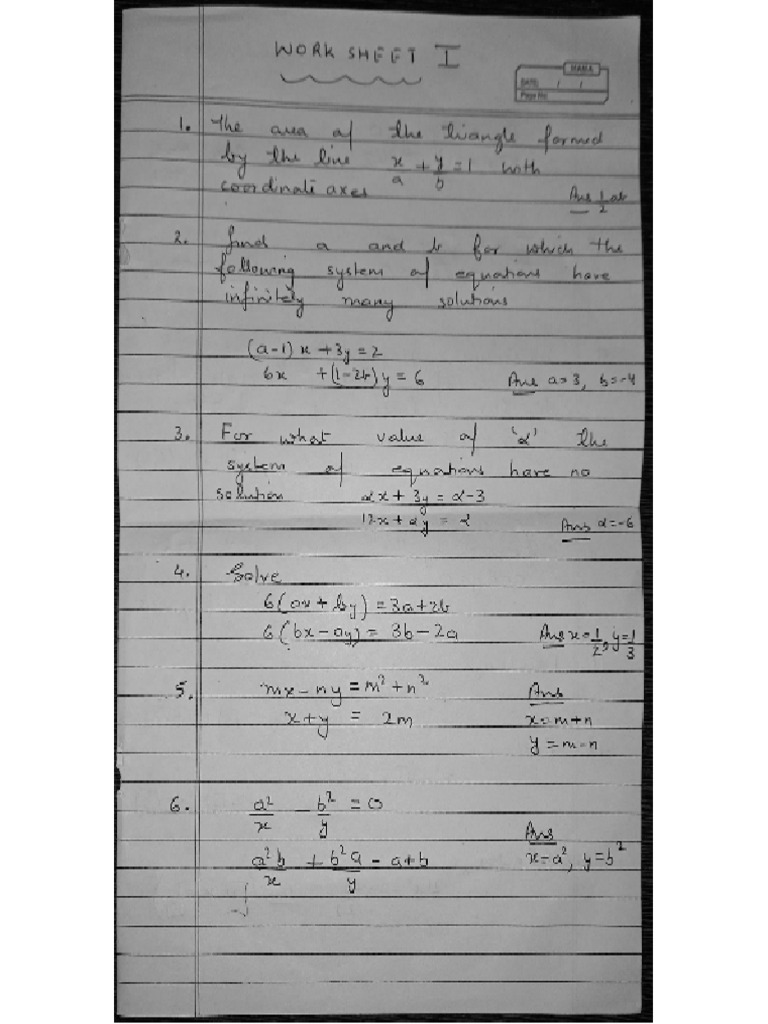 WORK SHEET I
MAHA
DATE: / /
Page No.
1. The area of the triangle formed
by the line x/a + y/b = 1 with
coordinate axes
Ans 1/2 ab
2. find a and b for which the
following system of equations have
infinitely many solutions
(a-1) x + 3y = 2
6x + (1-2b) y = 6 Ans a=3, b=-4
3. For what value of 'α' the
system of equations have no
solution αx + 3y = α-3
12x + αy = α Ans α=-6
4. Solve
6(ax + by) = 3a+2b
6(bx - ay) = 3b - 2a Ans x=1/2, y=1/3
5. mx - ny = m² + n² Ans
x + y = 2m x=m+n
y = m-n
6. a²/x - b²/y = 0
Ans
a²b/x + b²a/y = a+b x=a², y=b²